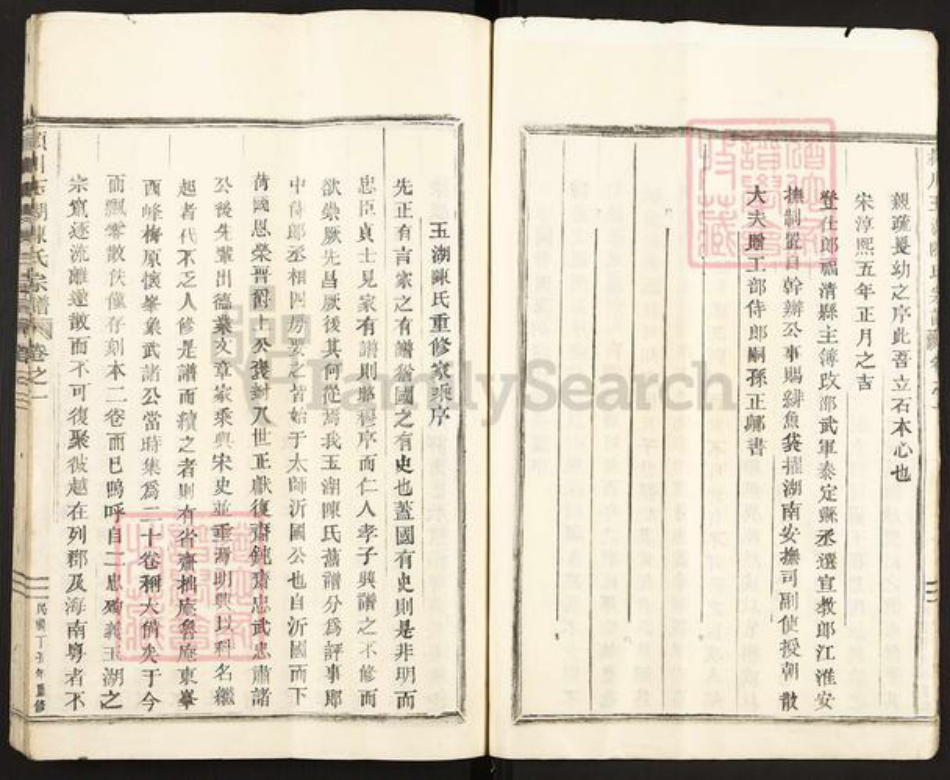 親疏長幼之序此吾立石本心也
宋淳熙五年正月之吉
登仕郎福清縣主簿改邵武軍泰定縣丞選宣教郎江淮安
撫制置司幹辦公事賜緋魚袋擢湖南安撫司副使授朝散
大夫贈工部侍郎嗣孫正鄊書
玉湖陳氏重修家乘序
先正有言家之有譜猶國之有史也蓋國有史則是非明而
忠臣貞士見家有譜則昭穆序而仁人孝子興譜之不修而
欲崇厥先昌厥後其何從焉我玉湖陳氏舊譜分為評事郎
中侍郎丞相四房要之皆始于太師沂國公也自沂國而下
荷國恩榮晋爵上公褒封八世正獻復齋鈍齋忠武忠肅諸
公後先輩出德業文章家乘與宋史並重溯明興以科名繼
起者代不乏人修是譜而續之者則有省齋拙庵魯庵東峯
西峰梅原懷峯象武諸公當時集為二十卷稱大備矣于今
而飄零散佚僅存刻本二卷而已嗚呼自二忠殉義玉湖之
宗竄逐流離遠散而不可復聚彼越在列郡及海南粵者不
潁川玉湖陳氏宗譜 卷之一
民國丁亥年重修
FamilySearch